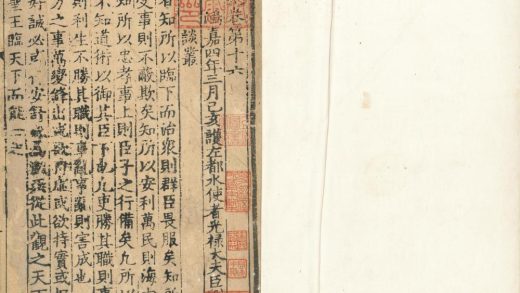 卷第十六
鴻嘉四年三月己亥護左都水使者光祿大夫臣
談叢
者知所以臨下而治衆則群臣畏服矣知所
受事則不蔽欺矣知所以安利萬民則海
知所以忠孝事上則臣子之行備矣凡所以
不知道術以御其臣下也凡吏勝其職則事
則利生不勝其職則事亂事亂則害成也
方之事萬變鋒出或欲持虛或欲持實或
好誠必或安舒或從此觀之天下
聖王臨天下而能一之